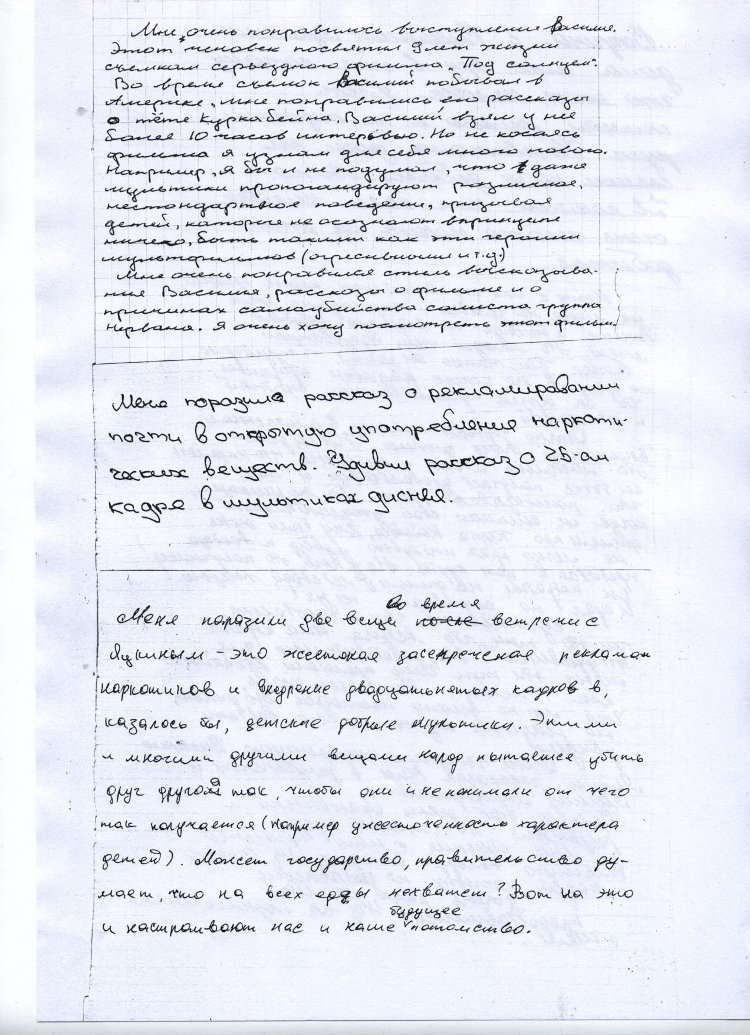 Мне очень понравилось выступление Василия.
Этот человек посвятил 9 лет жизни
съемкам серьездного фильма „Под солнцем".
Во время съемок Василий побывал в
Америке, мне понравились его рассказы
о тёте Курка Кабейна, Василий взял у неё
более 10 часов интервью. Но не касаясь
фильма я узнал для себя много нового.
Например, я бы и не подумал, что даже
мультики пропогандируют различное,
нестондартное поведение, призывая
детей, которые не осознают впринцепе
ничего, быть такими как эти герои
мультфильмов (агресивными и т.д.)
Мне очень понравился стиль высказыва-
ния Василия, рассказы о фильме и о
причинах самоубийства солиста группы
Нервана. Я очень хочу посмотреть этот фильм.
Меня поразила рассказ о рекламировании
почти в открытую употребления наркоти-
ческих веществ. Удивил рассказ о 25-ом
кадре в мультиках диснея.
Меня поразили две вещи во время встречи с
Яцкиным - это жестокая засекреченая реклама
наркотиков и внедрение двадцатьпятых кадров в,
казалось бы, детские добрые мультики. Этими
и многими другими вещами народ пытается убить
друг друга так, чтобы они и не понимали от чего
так получается (например ужесточенность характера
детей). Может государство, правительство ду-
мает, что на всех еды нехватет? Вот на это
и настраивают нас и наше будущее потомство.